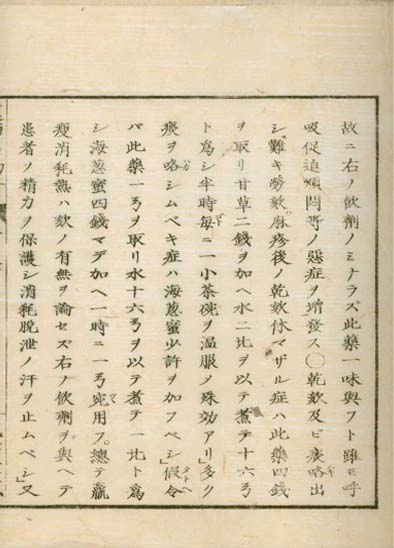 故ニ右ノ飲劑ノミナラズ此藥一味與フト雖モ呼
吸促迫煩悶等ノ惡症ヲ增發ス〇乾欬及ビ痰咯出
シ難キ勞欬麻疹後ノ乾欬休マザル症ハ此藥四錢
ヲ取リ甘草二錢ヲ加ヘ水二比ヲ以テ煮テ十六弓
ト爲シ半時每ニ一小茶碗ヲ温服メ殊効アリ」多ク
痰ヲ咯シムベキ症ハ海葱蜜少許ヲ加フベシ」假令
バ此藥一弓ヲ取リ水十六弓ヲ以テ煮テ一比ト爲
シ海葱蜜四錢マデ加ヘ一時ニ一弓宛用フ。總テ羸
瘦消耗熱ハ欬ノ有無ヲ論セズ右ノ飲劑ヲ與ヘテ
患者ノ精力ヲ保護シ消耗脱泄ノ汗ヲ止ムベシ」又